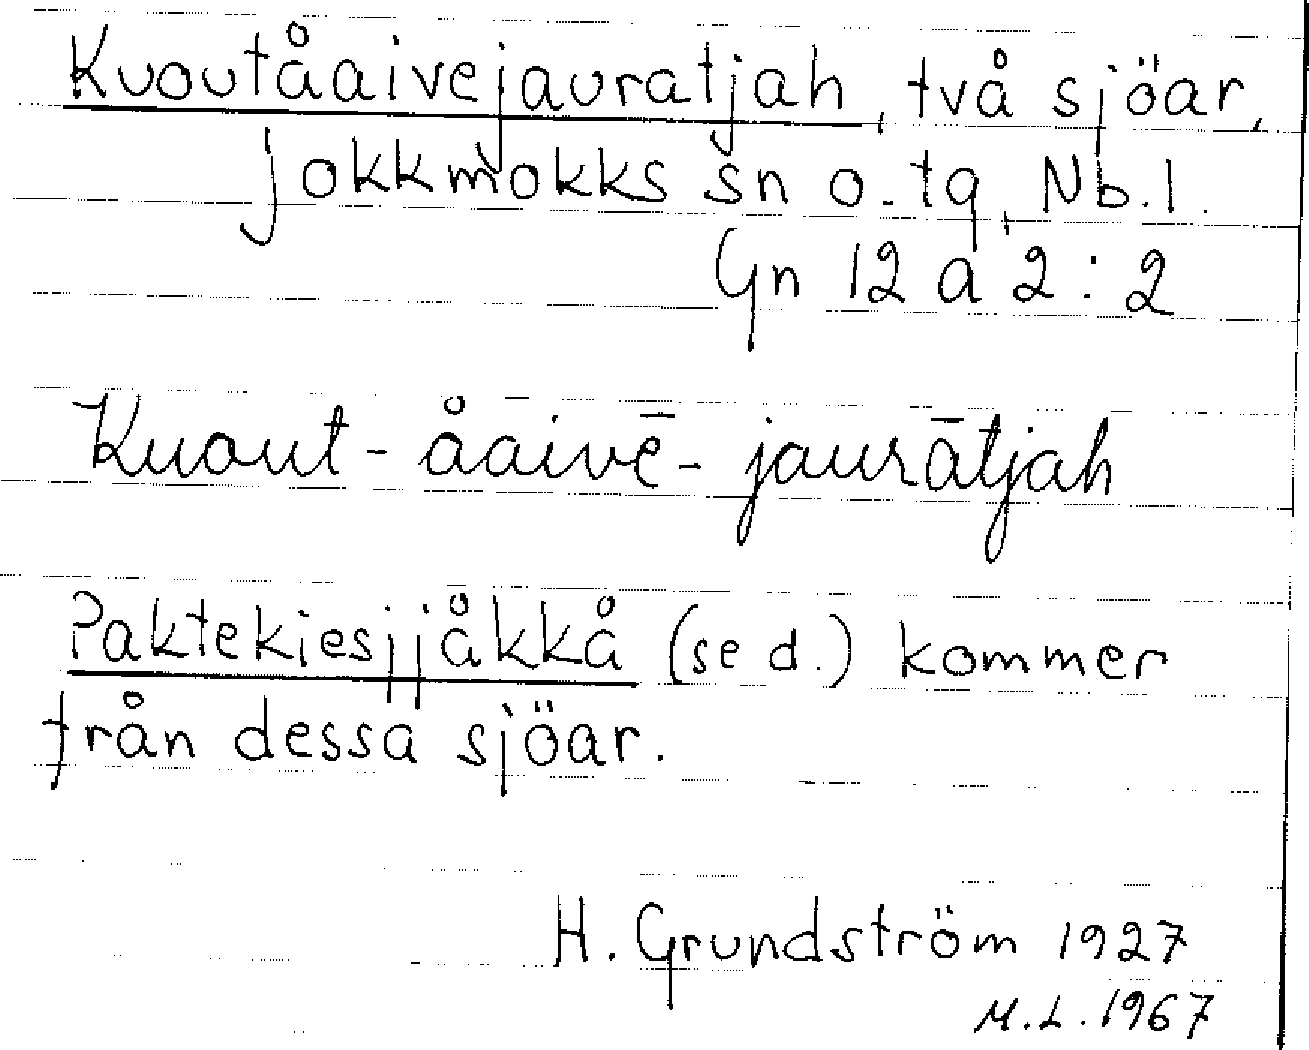 Kuoutåaivejauratjah, två sjöar,
Jokkmokks sn o. tg, Nb.l.
Gn 12 a 2:2
Kuout-åaivē-jaurātjah
Paktekiesjjåkkå (se d.) kommer
från dessa sjöar.
H. Grundström 1927
M.L. 1967